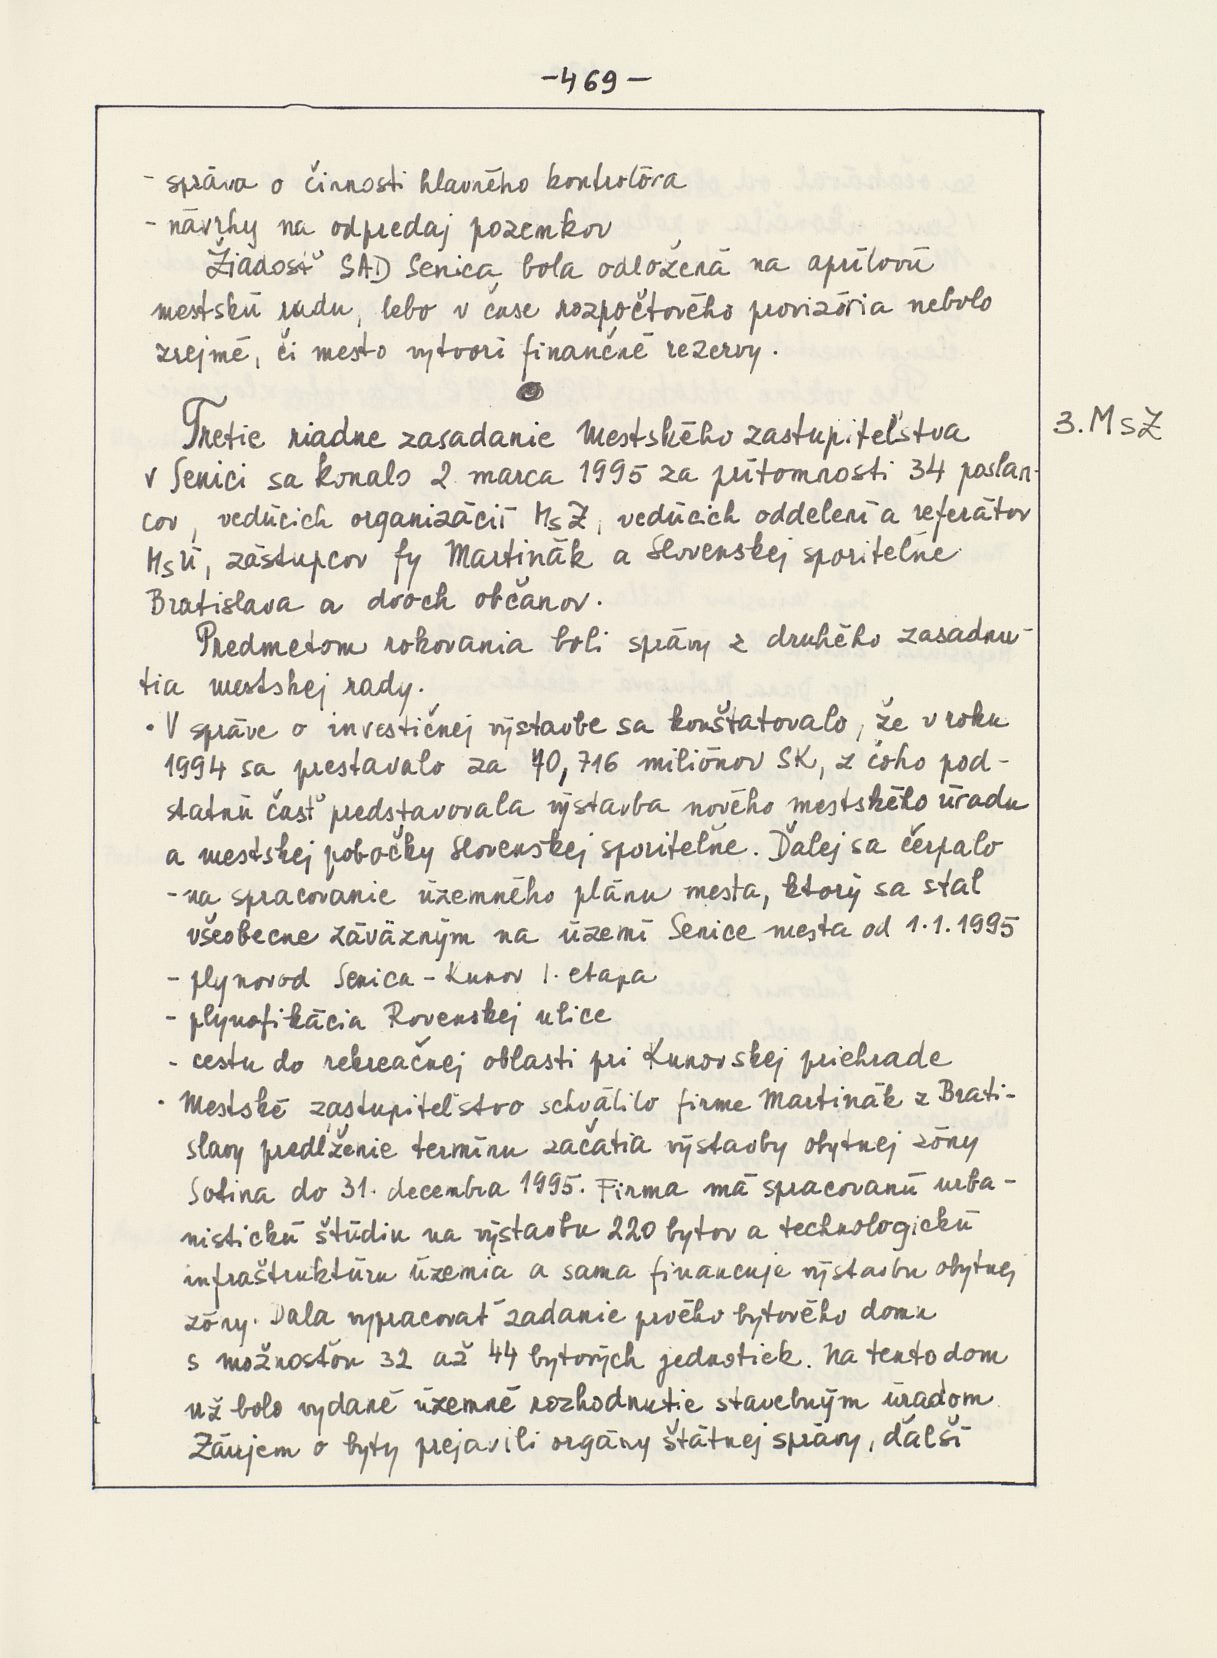 -469-
- správa o činnosti hlavného kontrolóra
- návrhy na odpredaj pozemkov
Žiadosť SAD Senica bola odložená na aprílovú
mestskú radu, lebo v čase rozpočtového provizória nebolo
zrejmé, či mesto vytvorí finančné rezervy.
Tretie riadne zasadanie Mestského zastupiteľstva
3. MsZ
v Senici sa konalo 2 marca 1995 za prítomnosti 34 poslan-
cov, vedúcich organizácií MsZ, vedúcich oddelení a referátov
MsÚ, zástupcov fy Martinák a Slovenskej sporiteľne
Bratislava a dvoch občanov.
Predmetom rokovania boli správy z druhého zasadnu-
tia mestskej rady.
• V správe o investičnej výstavbe sa konštatovalo, že v roku
1994 sa prestavalo za 70,716 miliónov SK, z čoho pod-
statnú časť predstavovala výstavba nového mestského úradu
a mestskej pobočky Slovenskej sporiteľne. Ďalej sa čerpalo
- na spracovanie územného plánu mesta, ktorý sa stal
všeobecne záväzným na území Senice mesta od 1.1.1995
- plynovod Senica - Kunov I. etapa
- plynofikácia Rovenskej ulice
- cestu do rekreačnej oblasti pri Kunovskej priehrade
• Mestské zastupiteľstvo schválilo firme Martinák z Brati-
slavy predlženie termínu začatia výstavby obytnej zóny
Sotina do 31. decembra 1995. Firma má spracovanú urba-
nistickú štúdiu na výstavbu 220 bytov a technologickú
infraštruktúru územia a sama financuje výstavbu obytnej
zóny. Dala vypracovať zadanie prvého bytového domu
s možnosťou 32 až 44 bytových jednotiek. Na tento dom
už bolo vydané územné rozhodnutie stavebným úradom
Záujem o byty prejavili orgány štátnej správy, ďalší